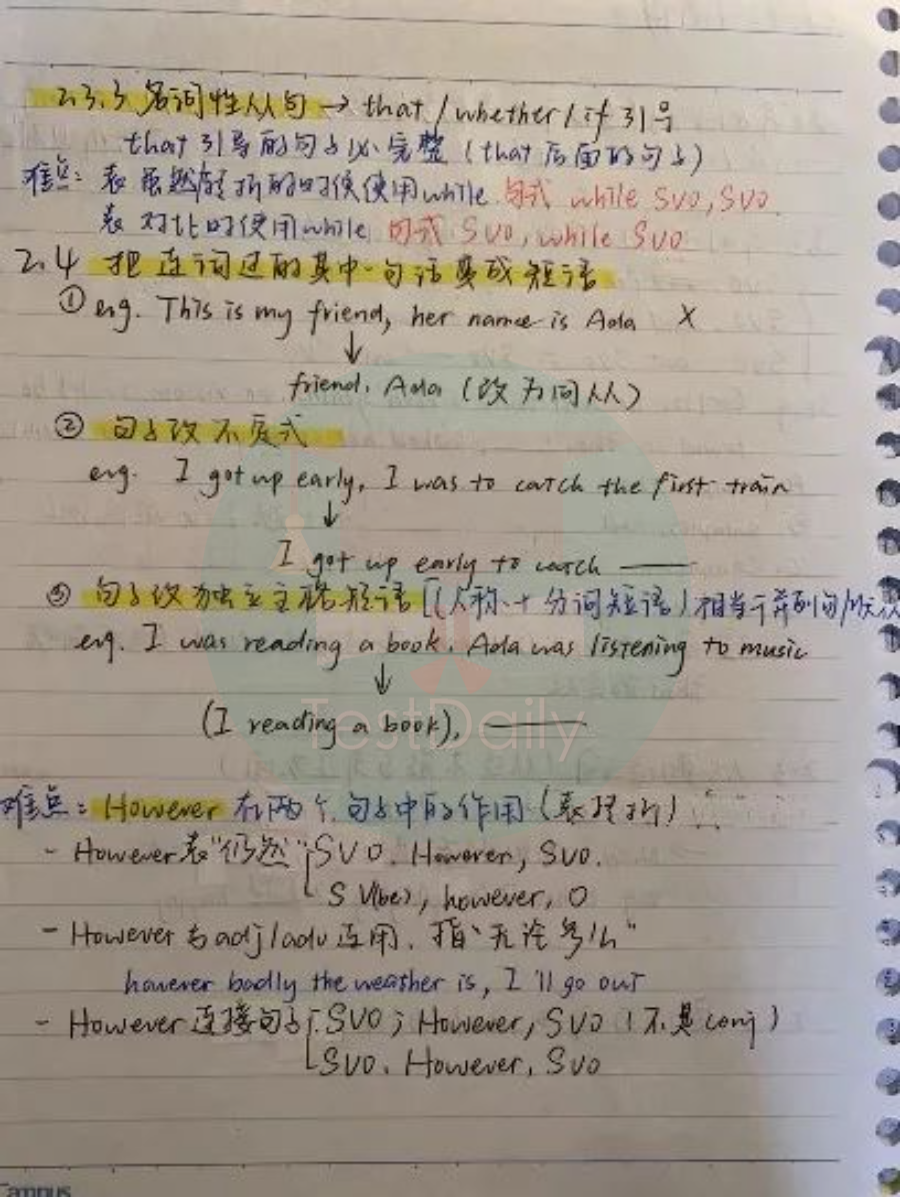 2.3.3 名词性从句 → that / whether / if 引导
that 引导的句子必完整 (that 后面的句子)
难点: 表虽然转折的时候使用while 句式 while SVO, SVO
表对比时使用while 句式 SVO, while SVO
2.4 把连词过的其中一句话变成短语
① eng. This is my friend, her name is Ada X
↓
friend, Ada (改为同从)
② 句子改不定式
eng. I got up early, I was to catch the first train
↓
I got up early to catch ——
③ 句子改独立主格短语 [(人称+分词短语) 相当于并列句/
eng. I was reading a book. Ada was listening to music
↓
(I reading a book), ——
TestDaily
难点: However 在两个句子中的作用 (表转折)
- However 表"仍然" SVO. However, SVO.
S V(be), however, O
- However 与adj/adv连用, 指"无论多么"
however badly the weather is, I'll go out
- However 连接句子: SVO; However, SVO (不是conj)
SVO. However, SVO
Campus